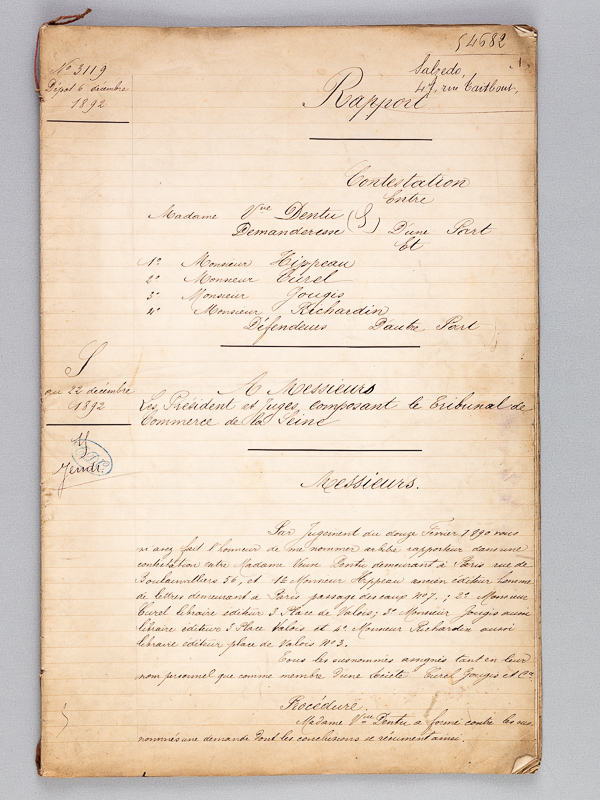 54682
No 3119
Dépot 6 décembre
1892
Salzedo,
47, rue Taitbout,
Rapport
Contestation
Entre
Madame Vve Dentu
Demanderesse D'une Part
Et
1o Monsieur Hippeau
2o Monsieur Curel
3o Monsieur Gougis
4o Monsieur Richardin
Défendeurs D'autre Part
S
au 22 décembre
1892
A Messieurs
Les Président et Juges composant le Tribunal de
Commerce de la Seine
Messieurs.
Par Jugement du douze Février 1890 vous
m'avez fait l'honneur de me nommer arbitre rapporteur dans une
contestation entre Madame Veuve Dentu demeurant à Paris rue de
Boulainvilliers 36, et 1o Monsieur Hippeau ancien éditeur homme
de lettres demeurant à Paris passage des eaux No 7. ; 2o Monsieur
Curel libraire éditeur 3 Place de Valois ; 3o Monsieur Gougis aussi
libraire éditeur 3 Place Valois et 4o Monsieur Richardin aussi
libraire éditeur place de Valois No 3.
Tous les susnommés assignés tant en leur
nom personnel que comme membre d'une Société Curel Gougis et Cie
Procédure.
Madame Vve Dentu a formé contre les sus
nommés une demande dont les conclusions se résument ainsi.